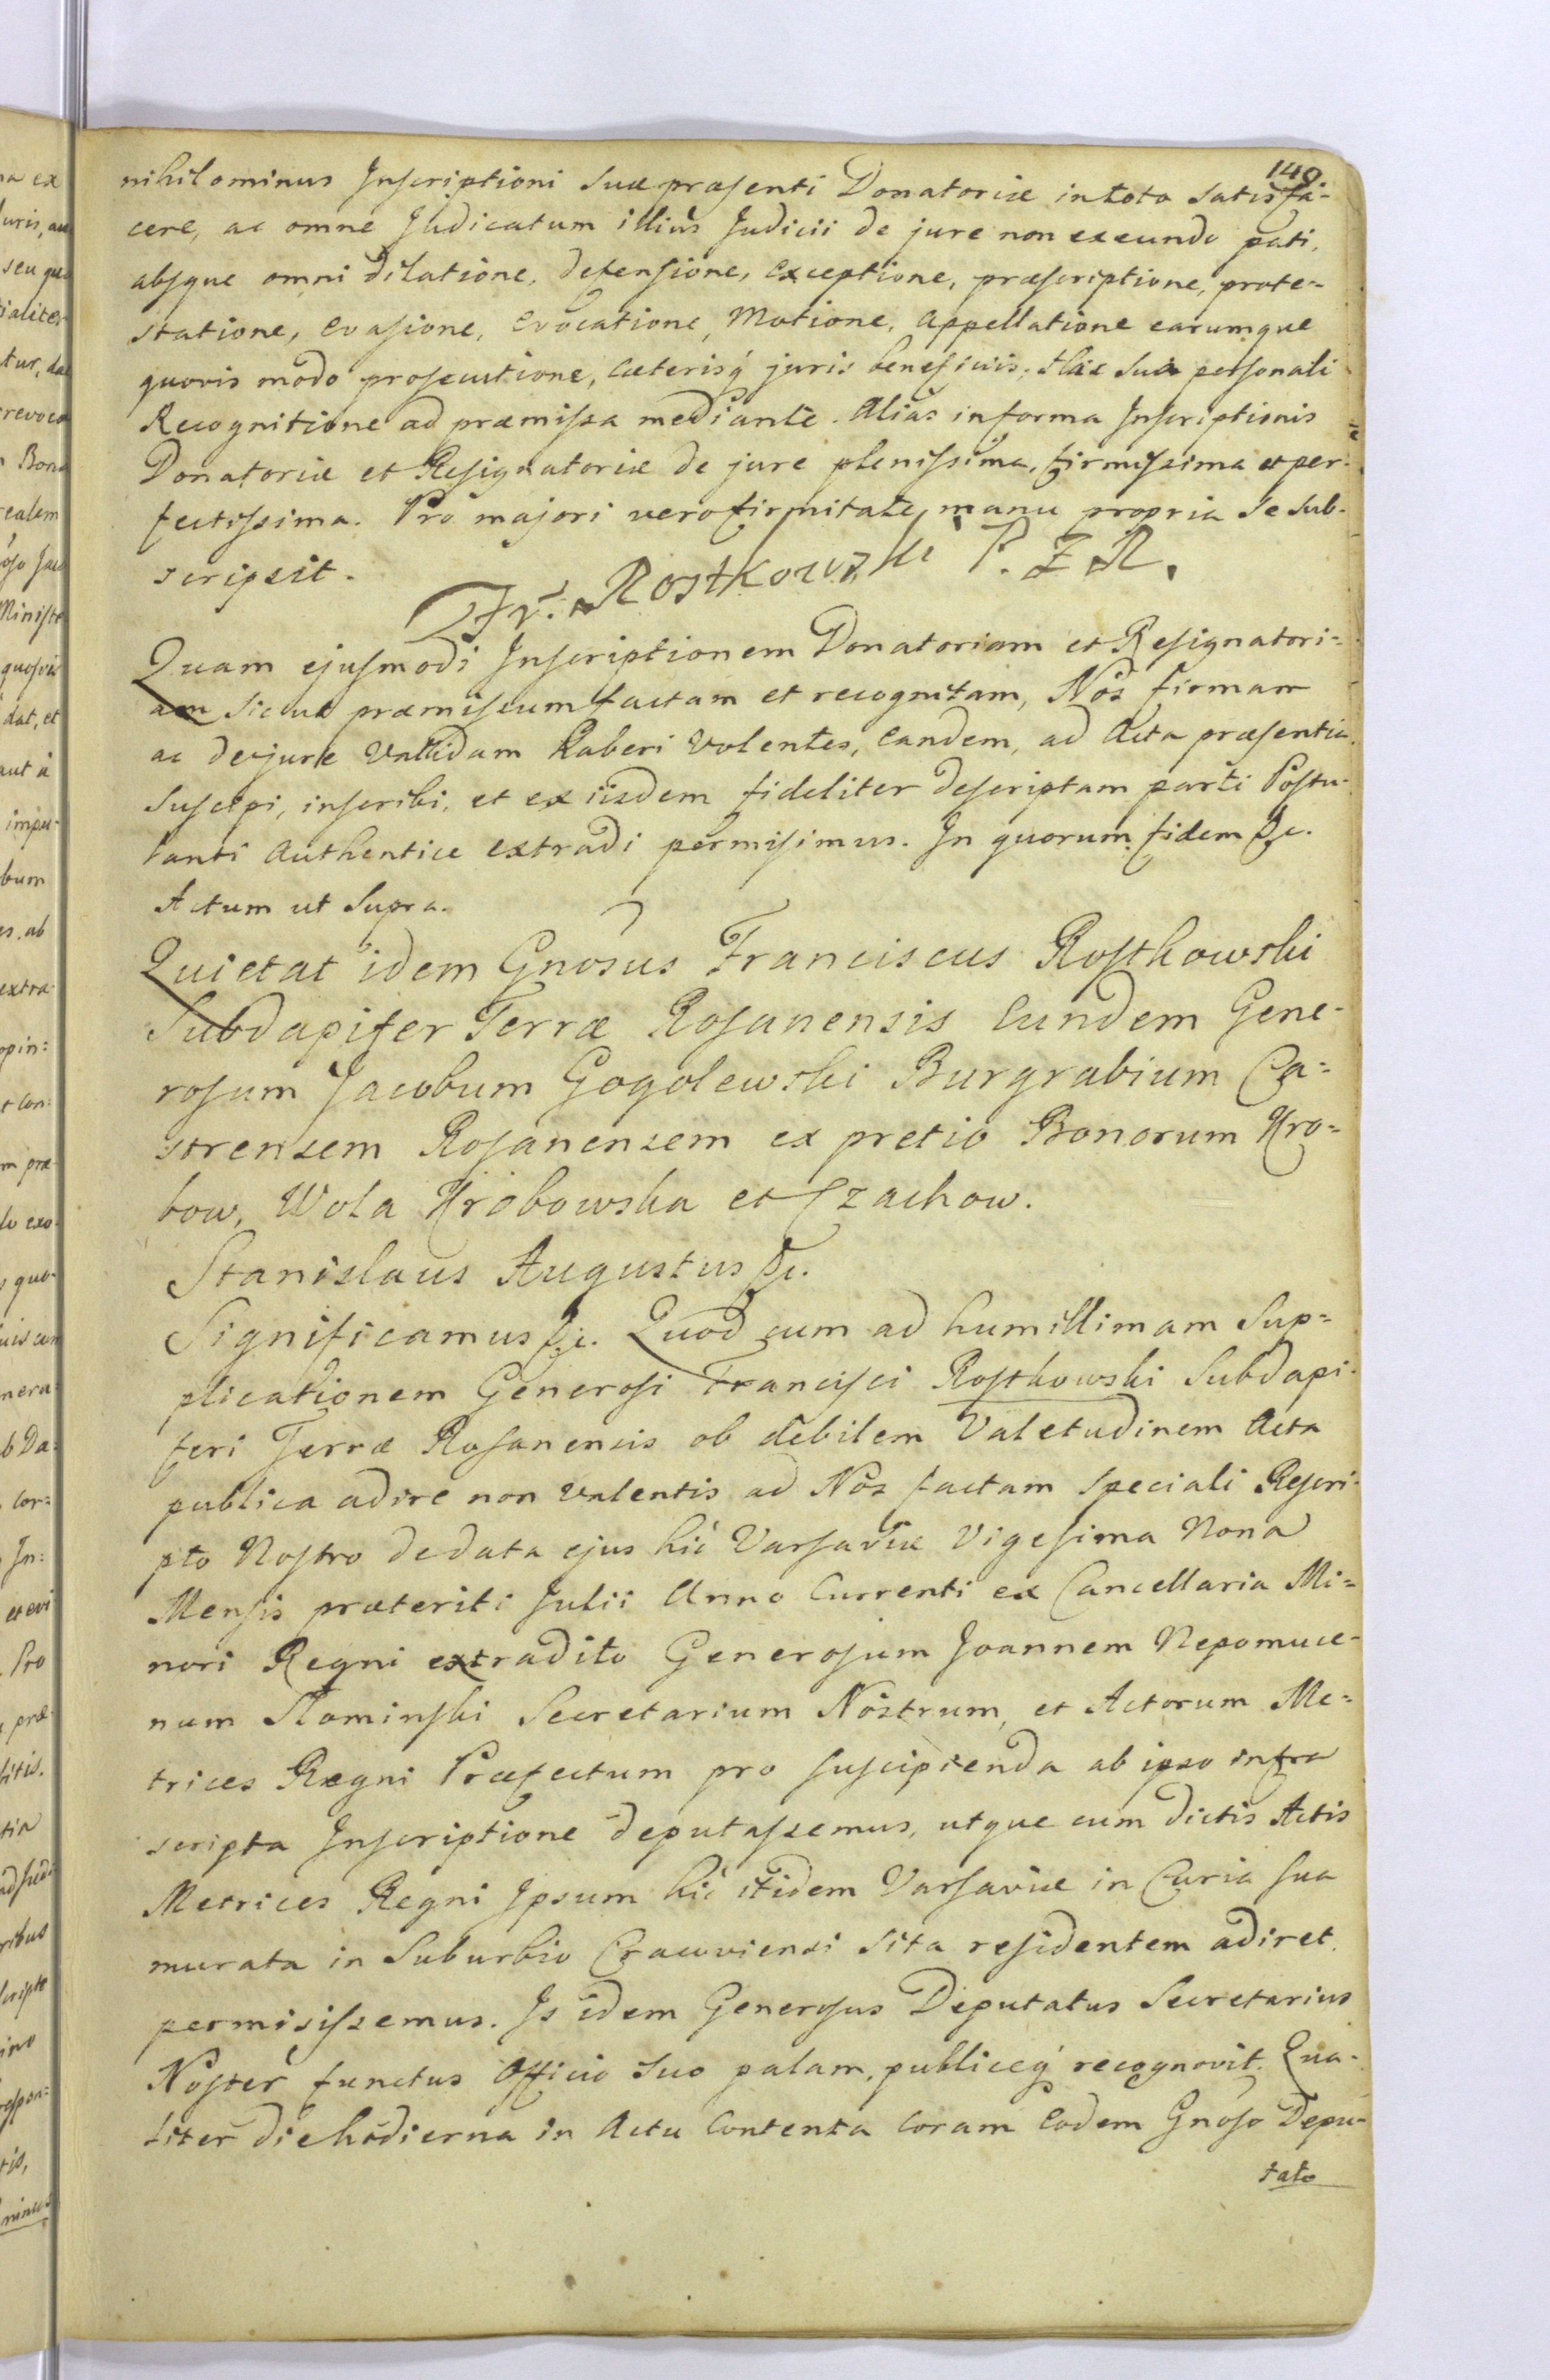 149.
nihilominus Inscriptioni suæ præsenti Donatoriæ in toto satisfa-
cere, ac omne Judicatum illius Judicii de jure non exeundo pati,
absque omni dilatione, defensione, exceptione, præscriptione, prote-
statione, evasione, evocatione, Motione, appellatione earumque
quovis modo prosecutione, cæterisq́ juris beneficiis; Hac sua personali
Recognitione ad præmissa mediante. Alias in forma Inscriptionis
Donatoriæ et Resignatoriæ de jure plenissima, firmissima et per-
fectissima. Pro majori vero firmitate, manu propria se sub-
scripsit.
Fr. Rostkowski P. Z R.
Quam ejusmodi Inscriptionem Donatoriam et Resignatori-
am sic ut præmissum factam et recognitam, Nos firmam
ac de jure validam haberi volentes, eandem, ad Acta præsentia
suscipi, inscribi, et ex iisdem fideliter descriptam parti Postu-
lanti Authentice extradi permisimus. In quorum fidem &c.
Actum ut supra.
Quietat idem Gnosus Franciscus Rostkowski
Subdapifer Terræ Rosanensis eundem Gene-
rosum Jacobum Gogolewski Burgrabium Ca=
strensem Rosanensem ex pretio Bonorum Hro=
bow, Wola Hrobowska et Czachow.
Stanislaus Augustus &c.
Significamus &c. Quod cum ad humillimam Sup=
plicationem Generosi Francisci Rostkowski Subdapi-
feri Terræ Rosanensis ob debilem Valetudinem Acta
publica adire non valentis ad Nos factam speciali Rescri-
pto Nostro de data ejus hic Varsaviæ Vigesima Nona
Mensis præteriti Julii Anno Currenti ex Cancellaria Mi=
nori Regni extradito Generosum Joannem Nepomuce-
num Slominski Secretarium Nostrum, et Actorum Me=
trices Regni Præfectum pro suscipienda ab ipso infra
scripta Inscriptione deputassemus, utque cum dictis Actis
Metrices Regni Ipsum hic itidem Varsaviæ in Curia sua
murata in Suburbio Cracoviensi sita residentem adiret,
permisissemus. Is idem Generosus Deputatus Secretarius
Noster functus Officio suo palam, publiceq́ recognovit. Qua-
liter die hodierna in Actu Contenta Coram eodem Gnoso Depu-
tato